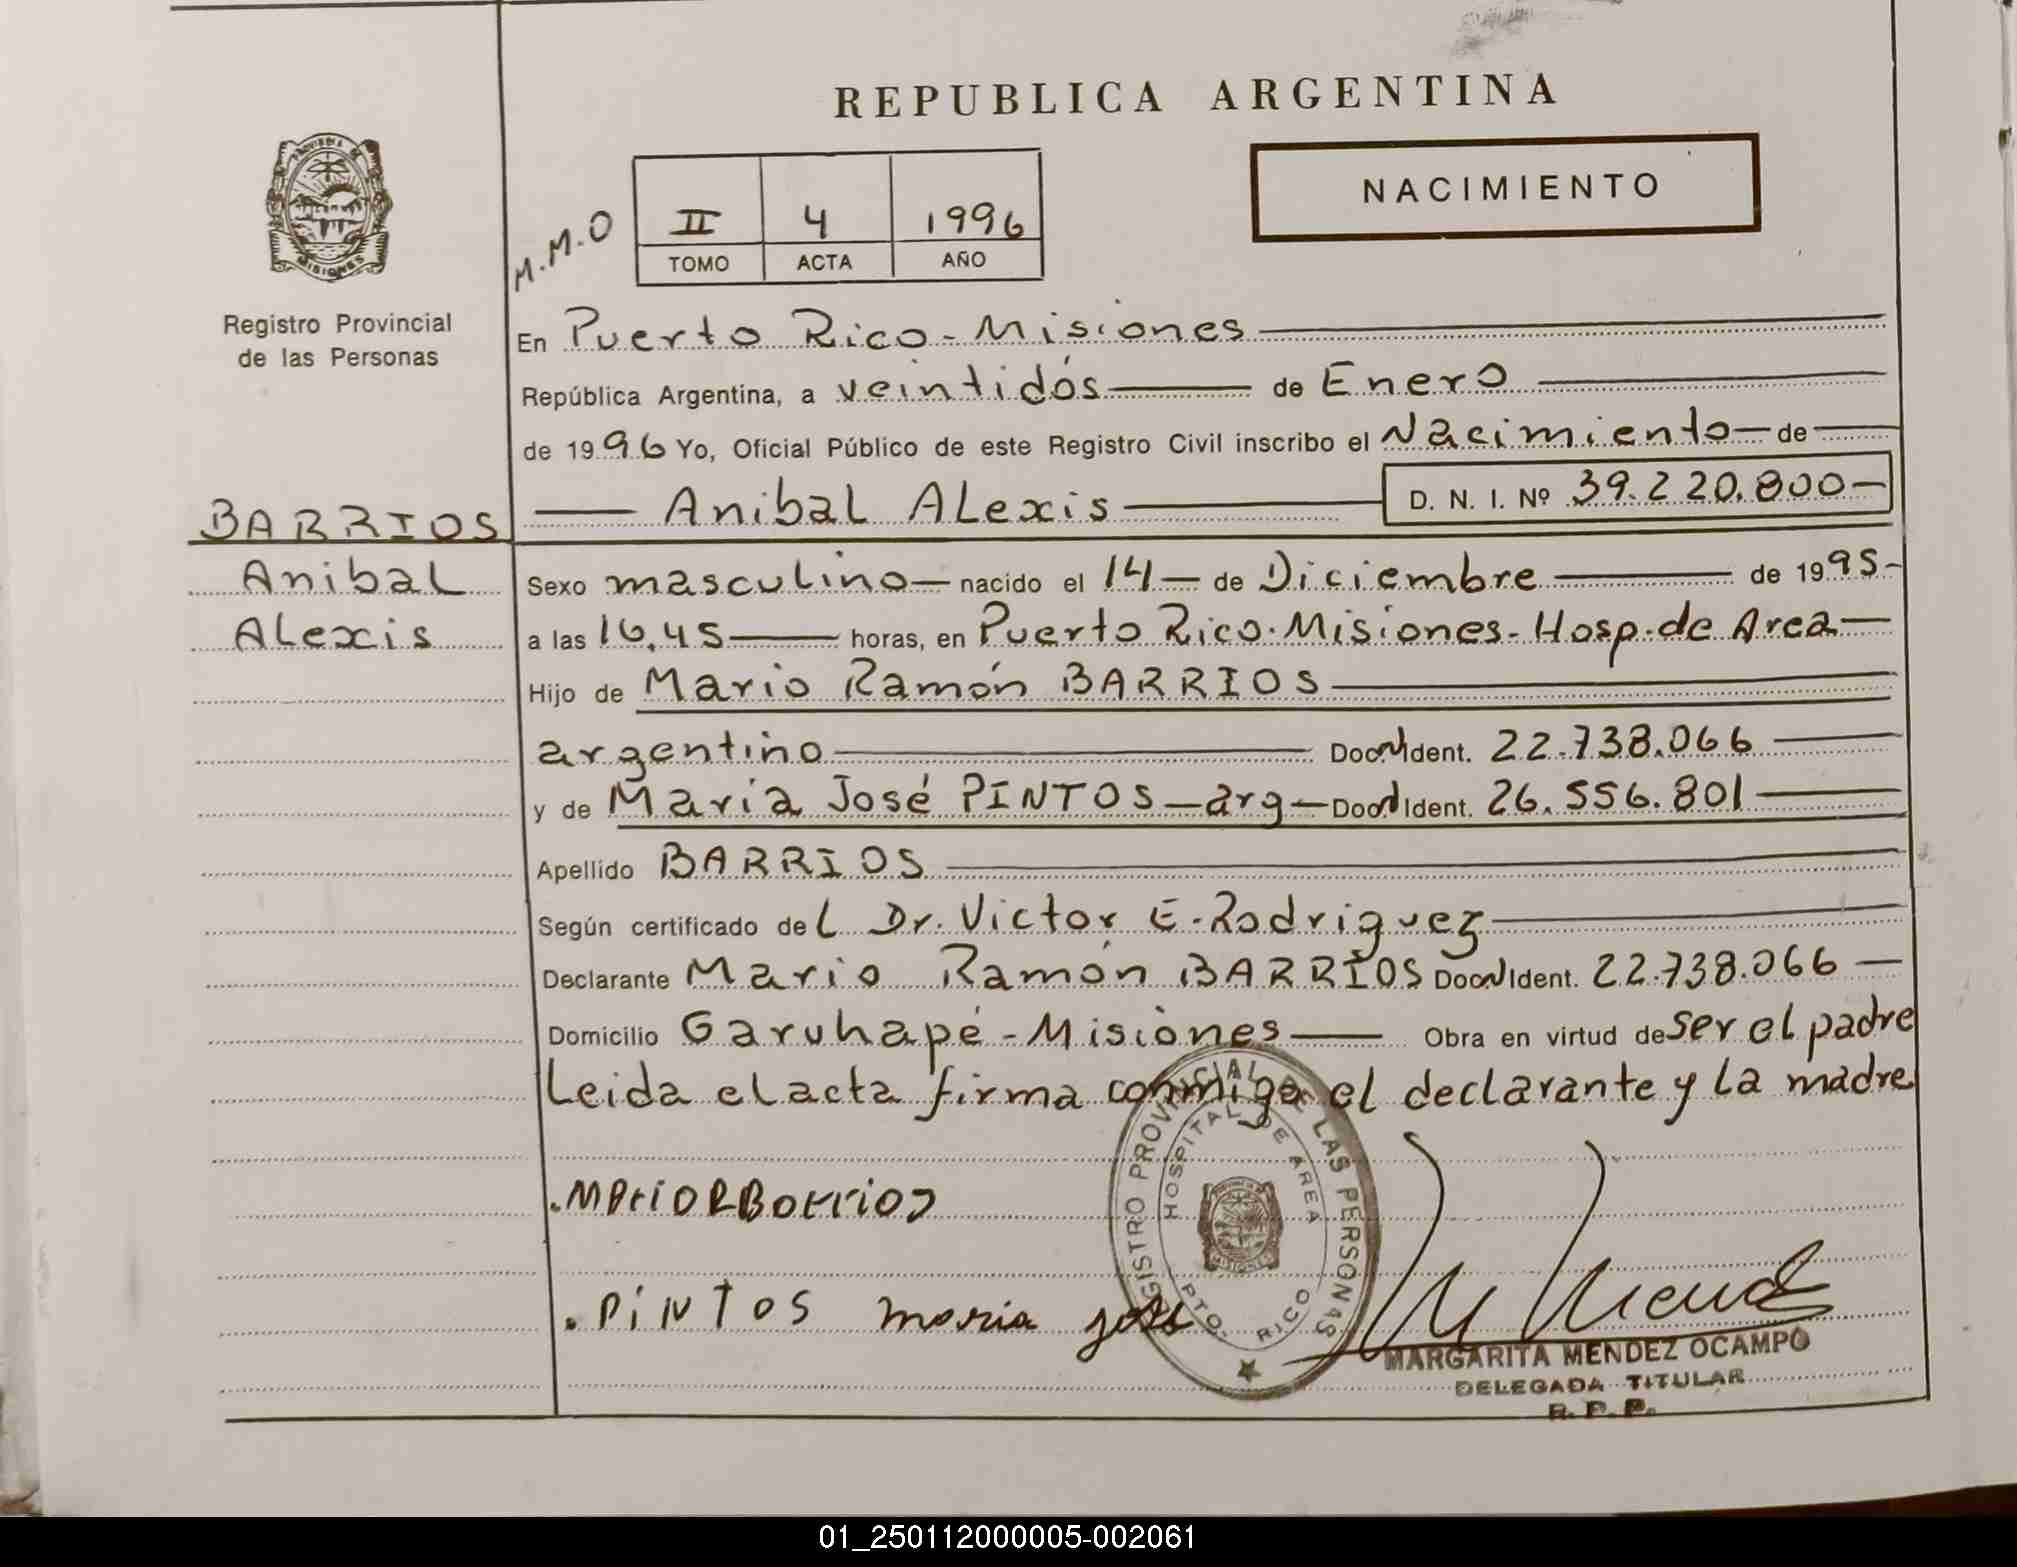 REPUBLICA ARGENTINA
PROVINCIA DE
MISIONES
Registro Provincial
de las Personas
NACIMIENTO
M.M.O
II 4 1996
TOMO ACTA AÑO
En Puerto Rico - Misiones
República Argentina, a veintidós de Enero
de 1996 Yo, Oficial Público de este Registro Civil inscribo el Nacimiento de
Anibal ALexis D. N. I. Nº 39.220.800-
BARRIOS
Anibal
ALexis
Sexo masculino nacido el 14 de Diciembre de 1995-
a las 16,45 horas, en Puerto Rico. Misiones - Hosp. de Area
Hijo de Mario Ramón BARRIOS
argentino Doc. N Ident. 22.738.066
y de Maria José PINTOS - arg - Doc. N Ident. 26.556.801
Apellido BARRIOS
Según certificado deL Dr. Victor E. Rodriguez
Declarante Mario Ramón BARRIOS Doc. N Ident. 22.738.066
Domicilio Garuhapé - Misiones Obra en virtud de ser el padre
Leida el acta firma conmigo el declarante y La madre
.Mario R Barrios
.PiNtOS maria jose
REGISTRO PROVINCIAL DE LAS PERSONAS
HOSPITAL DE AREA
PTO. RICO
MARGARITA MENDEZ OCAMPO
DELEGADA TITULAR
R. P. P.
01_250112000005-002061